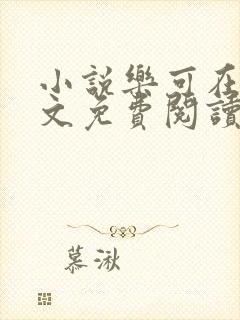 小說樂可在
文免費閱讀
慕湫